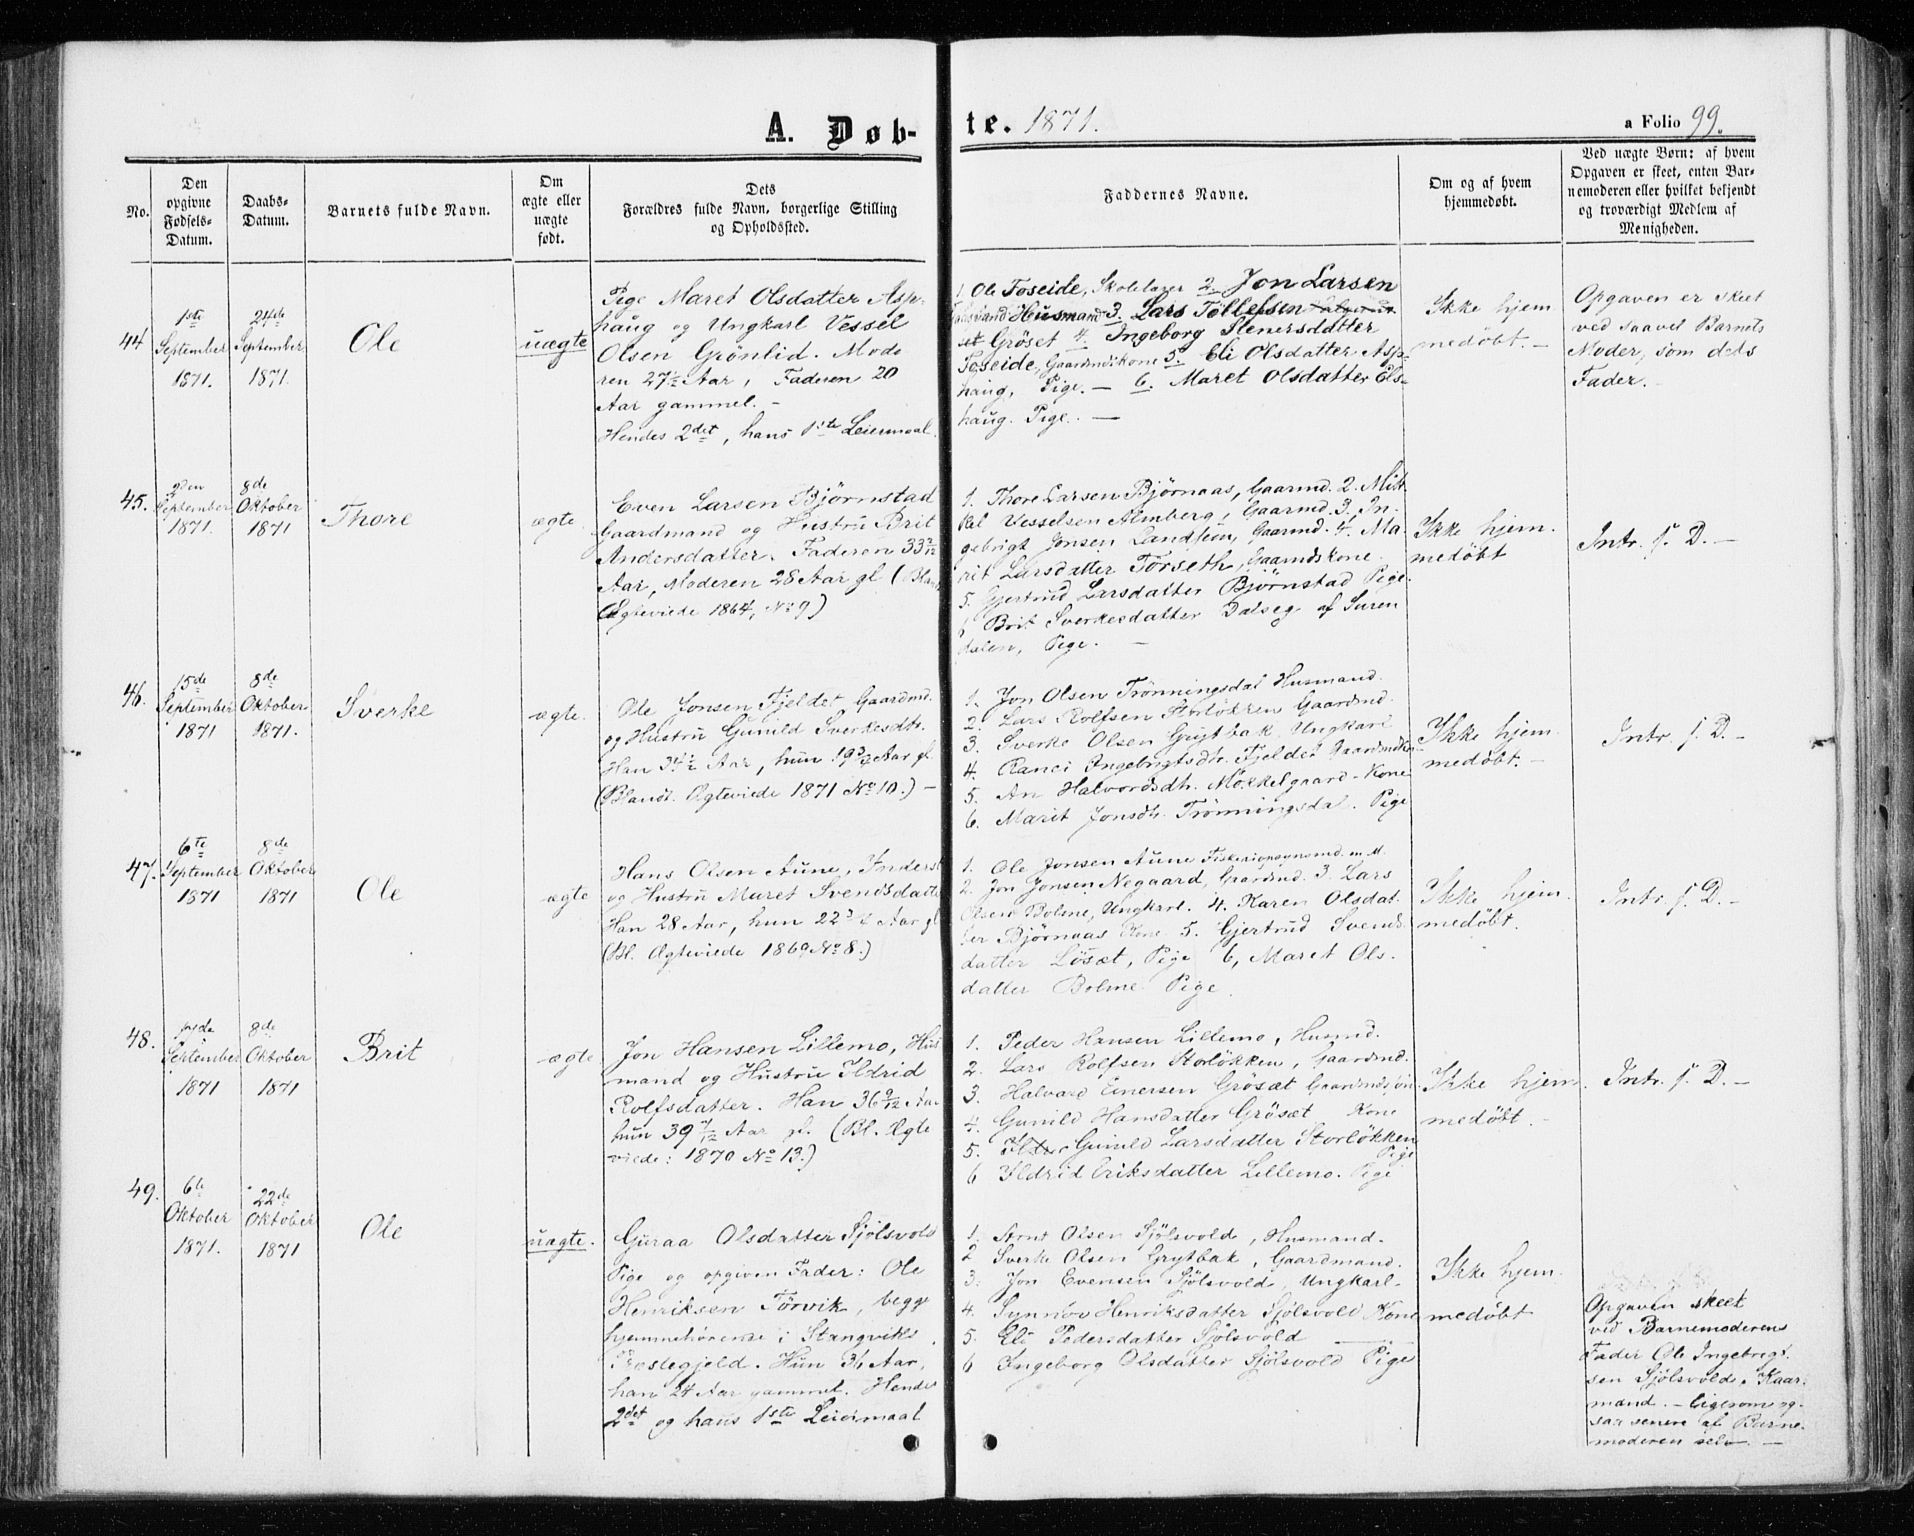 A. Døb-
te. 1871.
a Folio 99.
No.
Den
opgivne
Fødsels-
Datum.
Daabs-
Datum.
Barnets fulde Navn.
Om
ægte eller
uægte
født.
Dets
Forældres fulde Navn, borgerlige Stilling
og Opholdssted.
Faddernes Navne.
Om og af hvem
hjemmedøbt.
Ved uægte Børn: af hvem
Opgaven er skeet, enten Bar-
nemoderen eller hvilket bekjendt
og troværdigt Medlem af
Menigheden.
44
1ste
September
1871.
24de
September
1871.
Ole
uægte
Pige Maret Olsdatter Asp-
haug og Ungkarl Vessel
Olsen Grønlid. Mode
ren 27½ Aar, Faderen 20
Aar gammel. -
Hendes 2det, hans 1ste Leiermaal.
1. Ole Foseide, Skolelærer 2. Jon Larsen
Husmand 3. Lars Tøllefsen
Grøset 4. Ingeborg Stenersdatter
Foseide, Gaardmdskone 5. Eli Olsdatter Asp-
haug, Pige. - 6. Maret Olsdatter Els-
haug. Pige. -
Ikke hjem
medøbt. -
Opgaven er skeet
ved saavel Barnets
Moder, som dets
Fader. -
45.
September
1871.
8de
Oktober
1871
Thore
ægte.
Even Larsen Bjørnstad
Gaardmand og Hustru Brit
Andersdatter. Faderen 33 2/12
Aar, Moderen 28 Aar gl (Bland
Ægteviede 1864, No 9)
1. Thore Larsen Bjørnaas, Gaarmd. 2. Mik-
kel Vesselsen Almberg, Gaarmd. 3. In-
gebrigt Jonsen Landsem, Gaarmd. 4. Ma-
rit Larsdatter Torseth, Gaamdskone.
5. Gjertrud Larsdatter Bjørnstad Pige.
6 Brit Sverkesdatter Dalseg af Suren
dalen, Pige. -
Ikke hjem-
medøbt
Intr. f. D. -
46.
15de
September
1871
8de
Oktober
1871.
Sverke
ægte.
Ole Jonsen Fjeldet Gaardmd.
og Hustru Gunild Sverkesdtr.
Han 34½ Aar, hun 19 Aar gl.
(Blandt. Ægteviede 1871 No 10.) -
1. Jon Olsen Trønningsdal Husmand.
2. Lars Rolfsen Storløkken Gaardmd.
3. Sverke Olsen Grytbak Ungkarl
4. Ranei Ingebrigtsdtr. Fjeldet Gaardmdkon
5. An Halvordsdtr. Mokkelgaard - Kone
6. Marit Jonsdtr. Trønningsdal. Pige
Ikke hjem-
medøbt. -
Intr. f. D. -
47.
6te
September
1871
8de
Oktober
1871
Ole
ægte
Hans Olsen Aune, Inderst
og Hustru Maret Svendsdatter
Han 28 Aar, hun 22 Aar gl
(Bl. Ægteviede 1869 No 8.)
1. Ole Jonsen Aune
2. Jon Jonsen Negaard, Gaardmd. 3. Lars
Olsen Bolme, Ungkarl. 4. Karen Olsdat-
ter Bjørnaas Kone 5. Gjertrud Svends-
datter Løsæt, Pige 6, Maret Ols-
datter Bolme Pige.
Ikke hjem.
medøbt.
Intr. f. D. -
48.
September
1871
8de
Oktober
1871
Brit
ægte
Jon Hansen Lillemo, Hus
mand og Hustru Ildrid
Rolfsdatter. Han 36 9/12 Aar
hun 39 7/12 Aar gl. (Bl. Ægte
viede: 1870 No 13.)
1. Peder Hansen Lillemo, Husmd.
2. Lars Rolfsen Storløkken, Gaardmd.
3. Halvard Einersen Grøsæt Gaardmdssøn
4. Gunild Hansdatter Grøsæt Kone
5. Gunild Larsdatter Storløkken
Pige
6 Ildrid Eriksdatter Lillemo. Pige
Ikke hjem.
medøbt. -
Intr. f. D. -
49.
6te
Oktober
1871.
22de
Oktober
1871
Ole
uægte.
Guraa Olsdatter Sjølsvold
Pige og opgiven Fader: Ole
Henriksen Tørvik, begge
hjemmehørende i Stangviks
Præstegjeld. Hun 31 Aar,
han 24 Aar gammel. Hendes
2det og hans 1ste Leiermaal
1. Arnt Olsen Sjølsvold, Husmand.
2 Sverke Olsen Grytbak, Gaardmand.
3. Jon Evensen Sjølsvold, Ungkarl-
4. Synnøv Henriksdatter Sjølsvold Kone
5. Eli Pedersdatter Sjølsvold
6 Ingeborg Olsdatter Sjølsvold Pige
Ikke hjem
medøbt
Opgaven skeet
ved Barnemoderens
Fader Ole Ingebrigt-
sen Sjølsvold, Kaar-
mand. - Ligesom og-
saa senere af Barne-
moderen selv. -